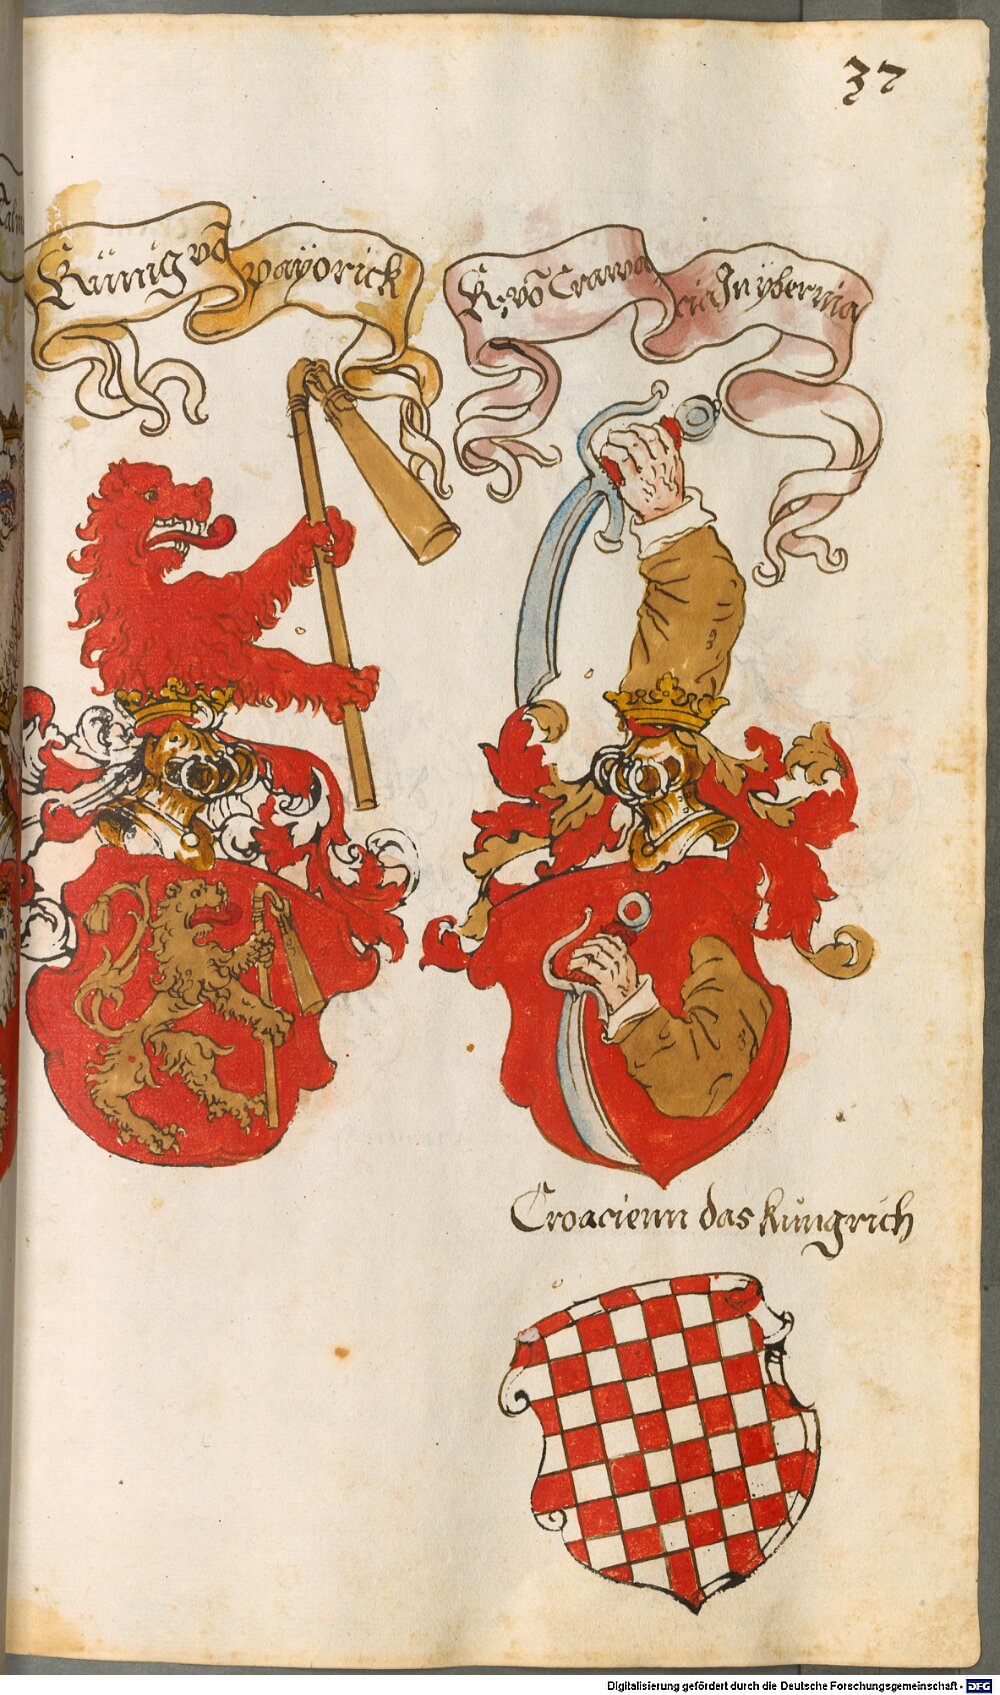 37
Künig võ payorick
K; võ Crawa cia Jn ybernia
Croacienn das kůngrich
Digitalisierung gefördert durch die Deutsche Forschungsgemeinschaft - DFG